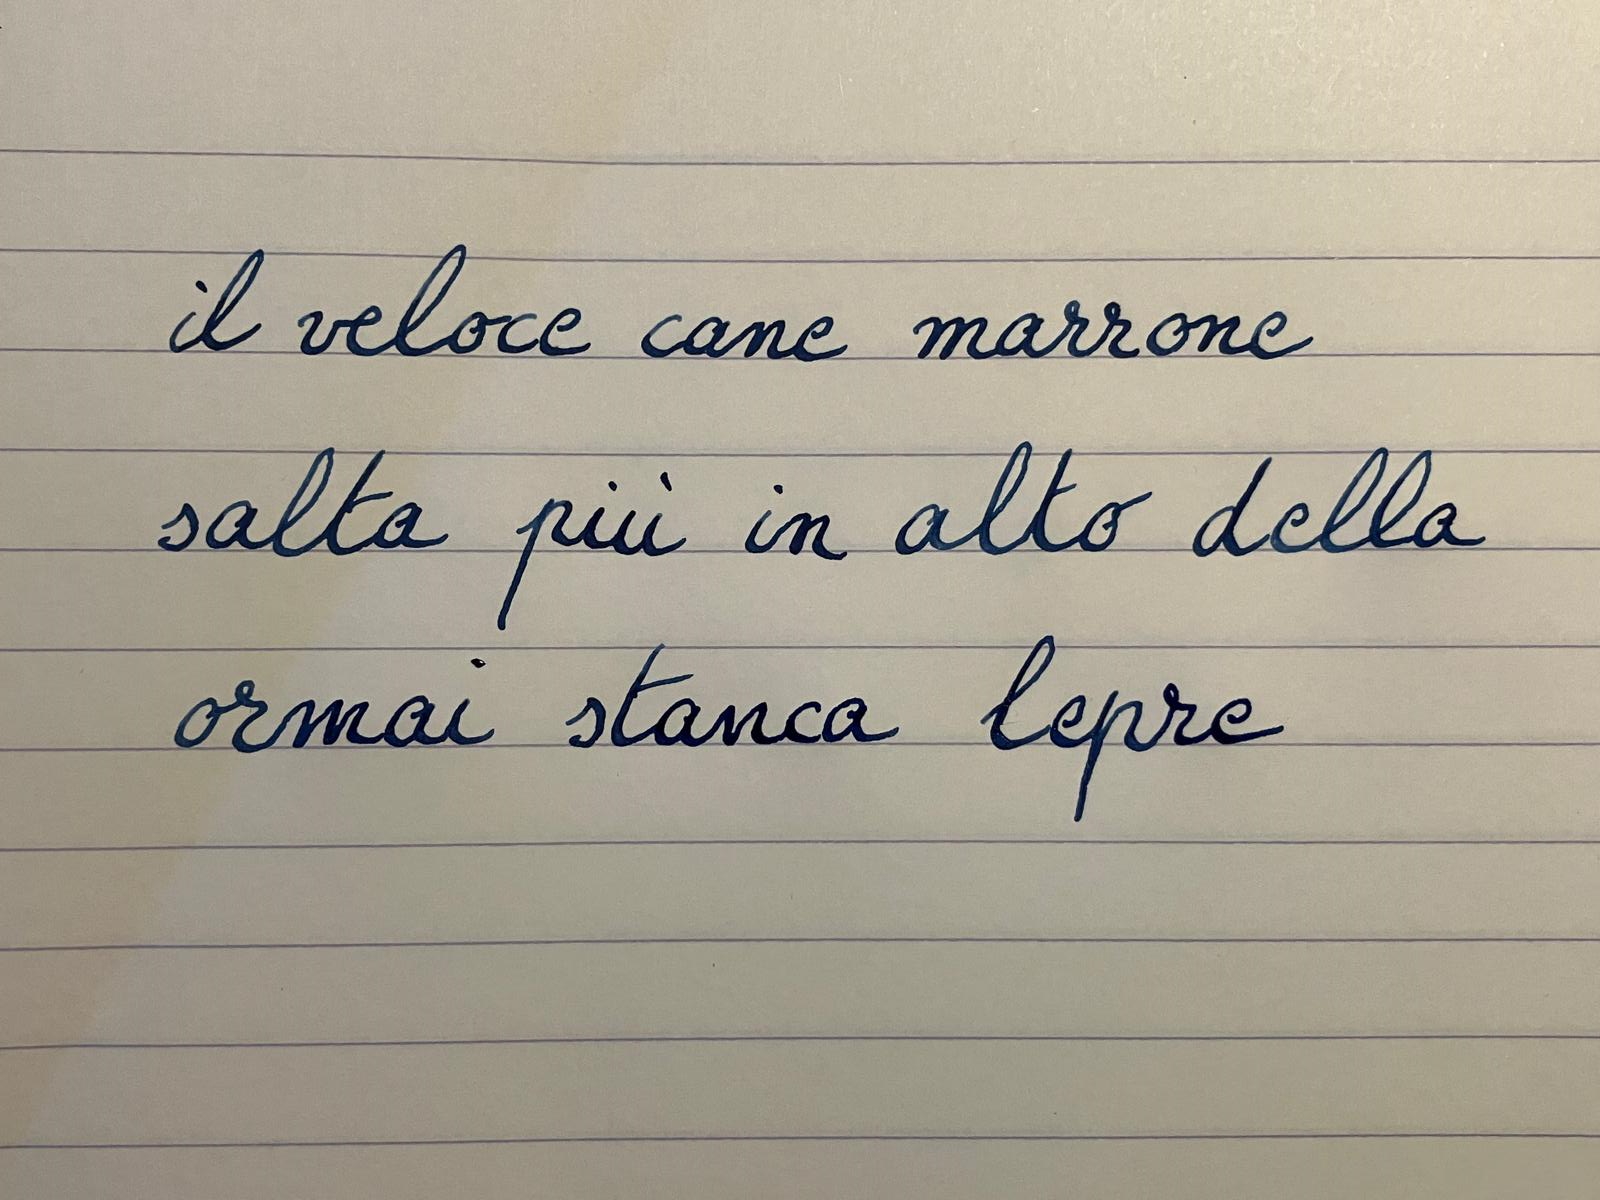 il veloce cane marrone
salta più in alto della
ormai stanca lepre